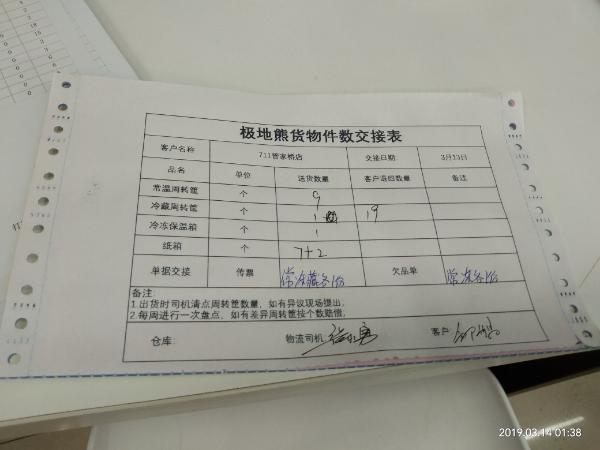 极地熊货物件数交接表
客户名称 711管家桥店 交接日期 3月13日
品名 单位 送货数量 客户退回数量 备注
常温周转筐 个 9
冷藏周转筐 个 1 19
冷冻保温箱 个 1
纸箱 个 7+2
单据交接 传票 常冷藏各1份 欠品单 常冻各1份
备注:
1.出货时司机清点周转筐数量,如有异议现场提出;
2.每周进行一次盘点,如有差异周转筐按个数赔偿;
仓库: 物流司机: 客户:
2019.03.14 01:38